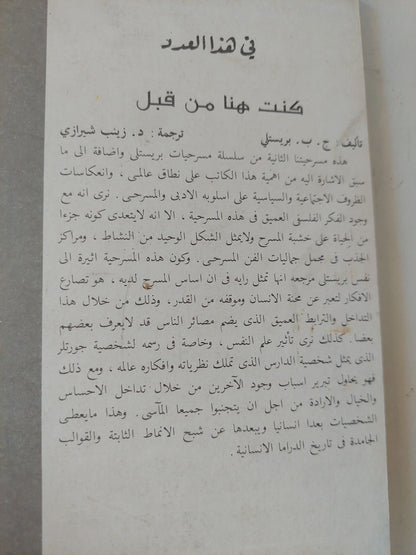 في هذا العدد
كنت هنا من قبل
تأليف: ج. ب. بريستلي ترجمة: د. زينب شيرازي
هذه مسرحيتنا الثانية من سلسلة مسرحيات بريستلى واضافة الى ما
سبق الاشارة اليه من اهمية هذا الكاتب على نطاق عالمى، وانعكاسات
الظروف الاجتماعية والسياسية على اسلوبه الادبى والمسرحى. نرى انه مع
وجود الفكر الفلسفى العميق فى هذه المسرحية، الا انه لايتعدى كونه جزءا
من الحياة على خشبة المسرح ولايمثل الشكل الوحيد من النشاط، ومراكز
الجذب فى مجمل جماليات الفن المسرحى. وكون هذه المسرحية اثيرة الى
نفس بريستلى مرجعه انها تمثل رايه فى ان اساس المسرح لديه، هو تصارع
الافكار لتعبر عن محنة الانسان وموقفه من القدر، وذلك من خلال هذا
التداخل والترابط العميق الذى يضم مصائر الناس قد لايعرف بعضهم
بعضا. كذلك نرى تأثير علم النفس، وخاصة فى رسمه لشخصية جورتلر
الذى يمثل شخصية الدارس الذى تملك نظرياته وافكاره عالمه، ومع ذلك
فهو يحاول تبرير اسباب وجود الآخرين من خلال تداخل الاحساس
والخيال والارادة من اجل ان يتجنبوا جميعا المآسى. وهذا مايعطى
الشخصيات بعدا انسانيا ويبعدها عن شبح الانماط الثابتة والقوالب
الجامدة فى تاريخ الدراما الانسانية.